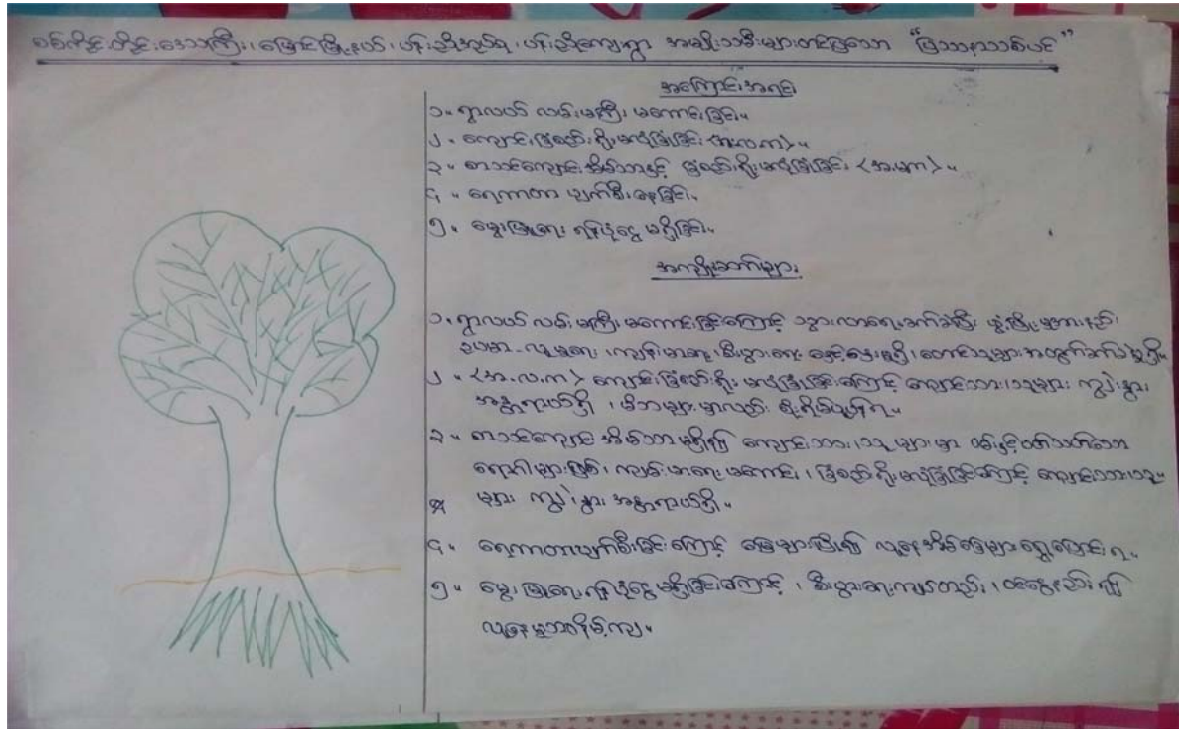 စစ်ကိုင်းတိုင်းဒေသကြီး၊ မြောင်မြို့နယ်၊ အမျိုးသမီးများတင်ပြသော "ပြဿနာသစ်ပင်"
အကြောင်းအရင်း
၁။ ရွာလယ် လမ်းမကြီး မကောင်းခြင်း။
၂။ ကျောင်းခြံစည်းရိုးမလုံခြုံခြင်း <အ.လ.က>။
၃။ စာသင်ကျောင်းအိမ်သာနှင့် ခြံစည်းရိုးမလုံခြုံခြင်း <အ.မ.က>။
၄။ ရေကာတာ ပျက်စီးနေခြင်း။
၅။ မွေးမြူရေး ရန်ပုံငွေ မရှိခြင်း။
အကျိုးဆက်များ
၁။ ရွာလယ် လမ်းမကြီး မကောင်းခြင်းကြောင့် သွားလာရေးခက်ခဲပြီး ဖွံ့ဖြိုးမှုအားနည်း
ဥပမာ - လူမှုရေး၊ ကျန်းမာရေး၊ စီးပွားရေး နှောင့်နှေးမှုရှိ၊ တောင်သူများအတွက်ခက်ခဲမှုရှိ။
၂။ <အ.လ.က> ကျောင်းခြံစည်းရိုး မလုံခြုံခြင်းကြောင့် ကျောင်းသား၊သူများ ကျွဲ၊ နွား
အန္တရာယ်ရှိ၊ မိဘများမှာလည်း စိုးရိမ်ပူပန်ရ။
၃။ စာသင်ကျောင်း အိမ်သာမရှိ၍ ကျောင်းသား၊သူများမှာ ဝမ်းနှင့်ပတ်သတ်သော
ရောဂါများဖြစ်၊ ကျန်းမာရေးမကောင်း၊ ခြံစည်းရိုးမလုံခြုံခြင်းကြောင့် ကျောင်းသားသူ
များ ကျွဲ၊ နွား အန္တရာယ်ရှိ။
၄။ ရေကာတာပျက်စီးခြင်းကြောင့် မြေများပြို၍ လူနေအိမ်ခြေများ ရွှေ့ပြောင်းရ။
၅။ မွေးမြူရေးရန်ပုံငွေမရှိခြင်းကြောင့်၊ စီးပွားရေးကျပ်တည်း၊ ဝင်ငွေနည်း၍
လူနေမှုဘဝနိမ့်ကျ။